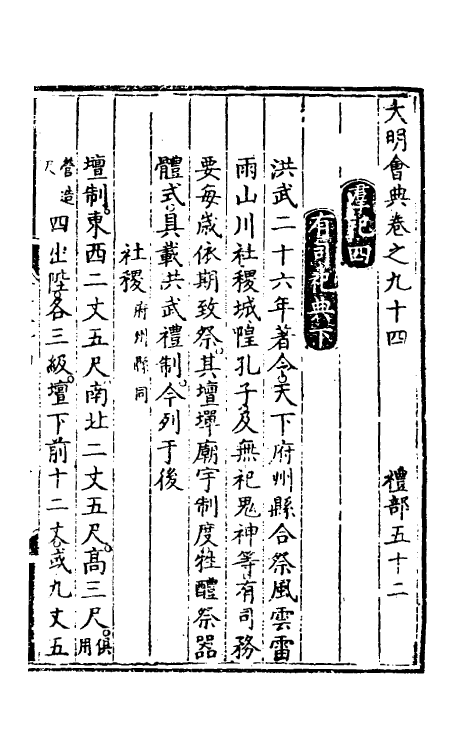 大明會典卷之九十四 禮部五十二
羣祀四
有司祀典下
洪武二十六年著令天下府州縣合祭風雲雷
雨山川社稷城隍孔子及無祀鬼神等有司務
要每歲依期致祭其壇墠廟宇制度牲醴祭器
體式具載洪武禮制今列于後
社稷府州縣同
壇制東西二丈五尺南北二丈五尺高三尺俱用
營造尺四出陛各三級壇下前十二丈或九丈五